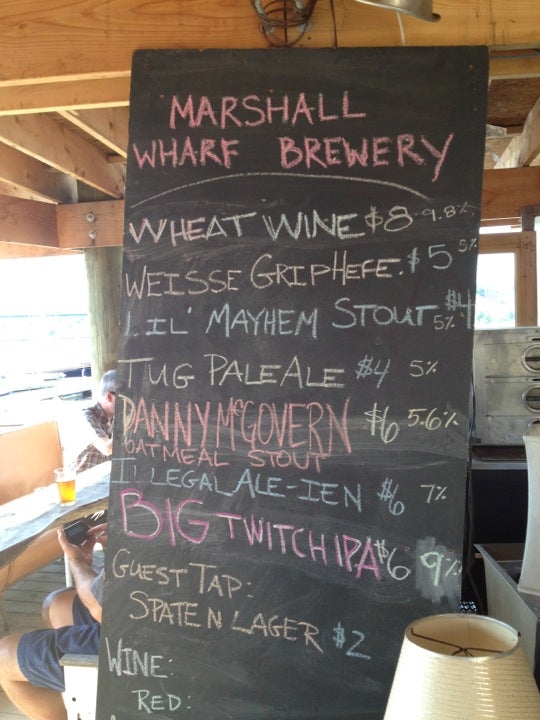 MARSHALL
WHARF BREWERY
WHEAT WINE $8 9.8%
WEISSE GRIP HEFE. $5 5%
LIL' MAYHEM STOUT $4 5%
TUG PALE ALE $4 5%
DANNY McGOVERN $6 5.6%
OATMEAL STOUT
ILLEGAL ALE-IEN $6 7%
BIG TWITCH IPA $6 9%
GUEST TAP:
SPATEN LAGER $2
WINE:
RED: